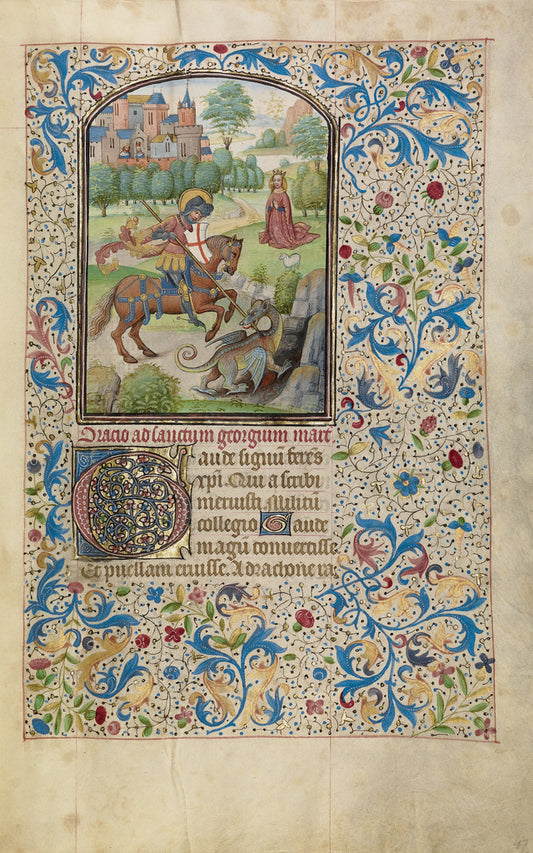 Oratio ad sanctum georgium mart.
Gaude signū ferēs
xpi. Qui a scribi
meruisti militū
collegio Gaude
magū conuertisse
Et puellam eruisse. A drachone ra